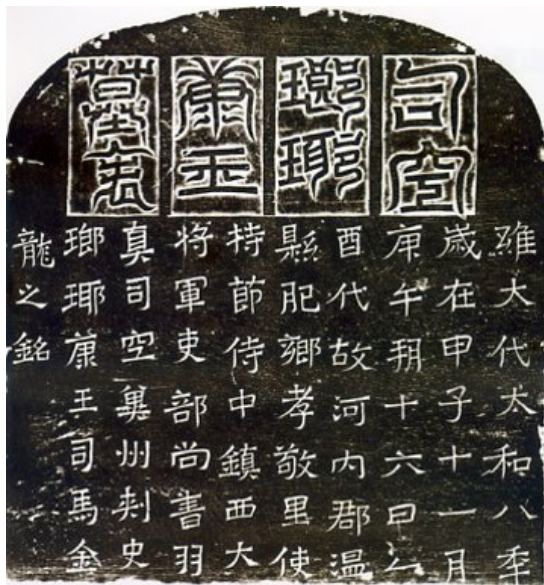 司空
瑯瑘
康王
墓表
維大代太和八年
歲在甲子十一月
庚午朔十六日乙
酉代故河內郡溫
縣肥鄉孝敬里使
持節侍中鎮西大
將軍吏部尚書羽
真司空冀州刺史
瑯瑘康王司馬金
龍之銘